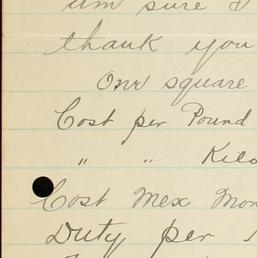 um sure I
thank you
Onr square
Cost per Pound
" " Kilo
Cost Mex Mon
Duty per